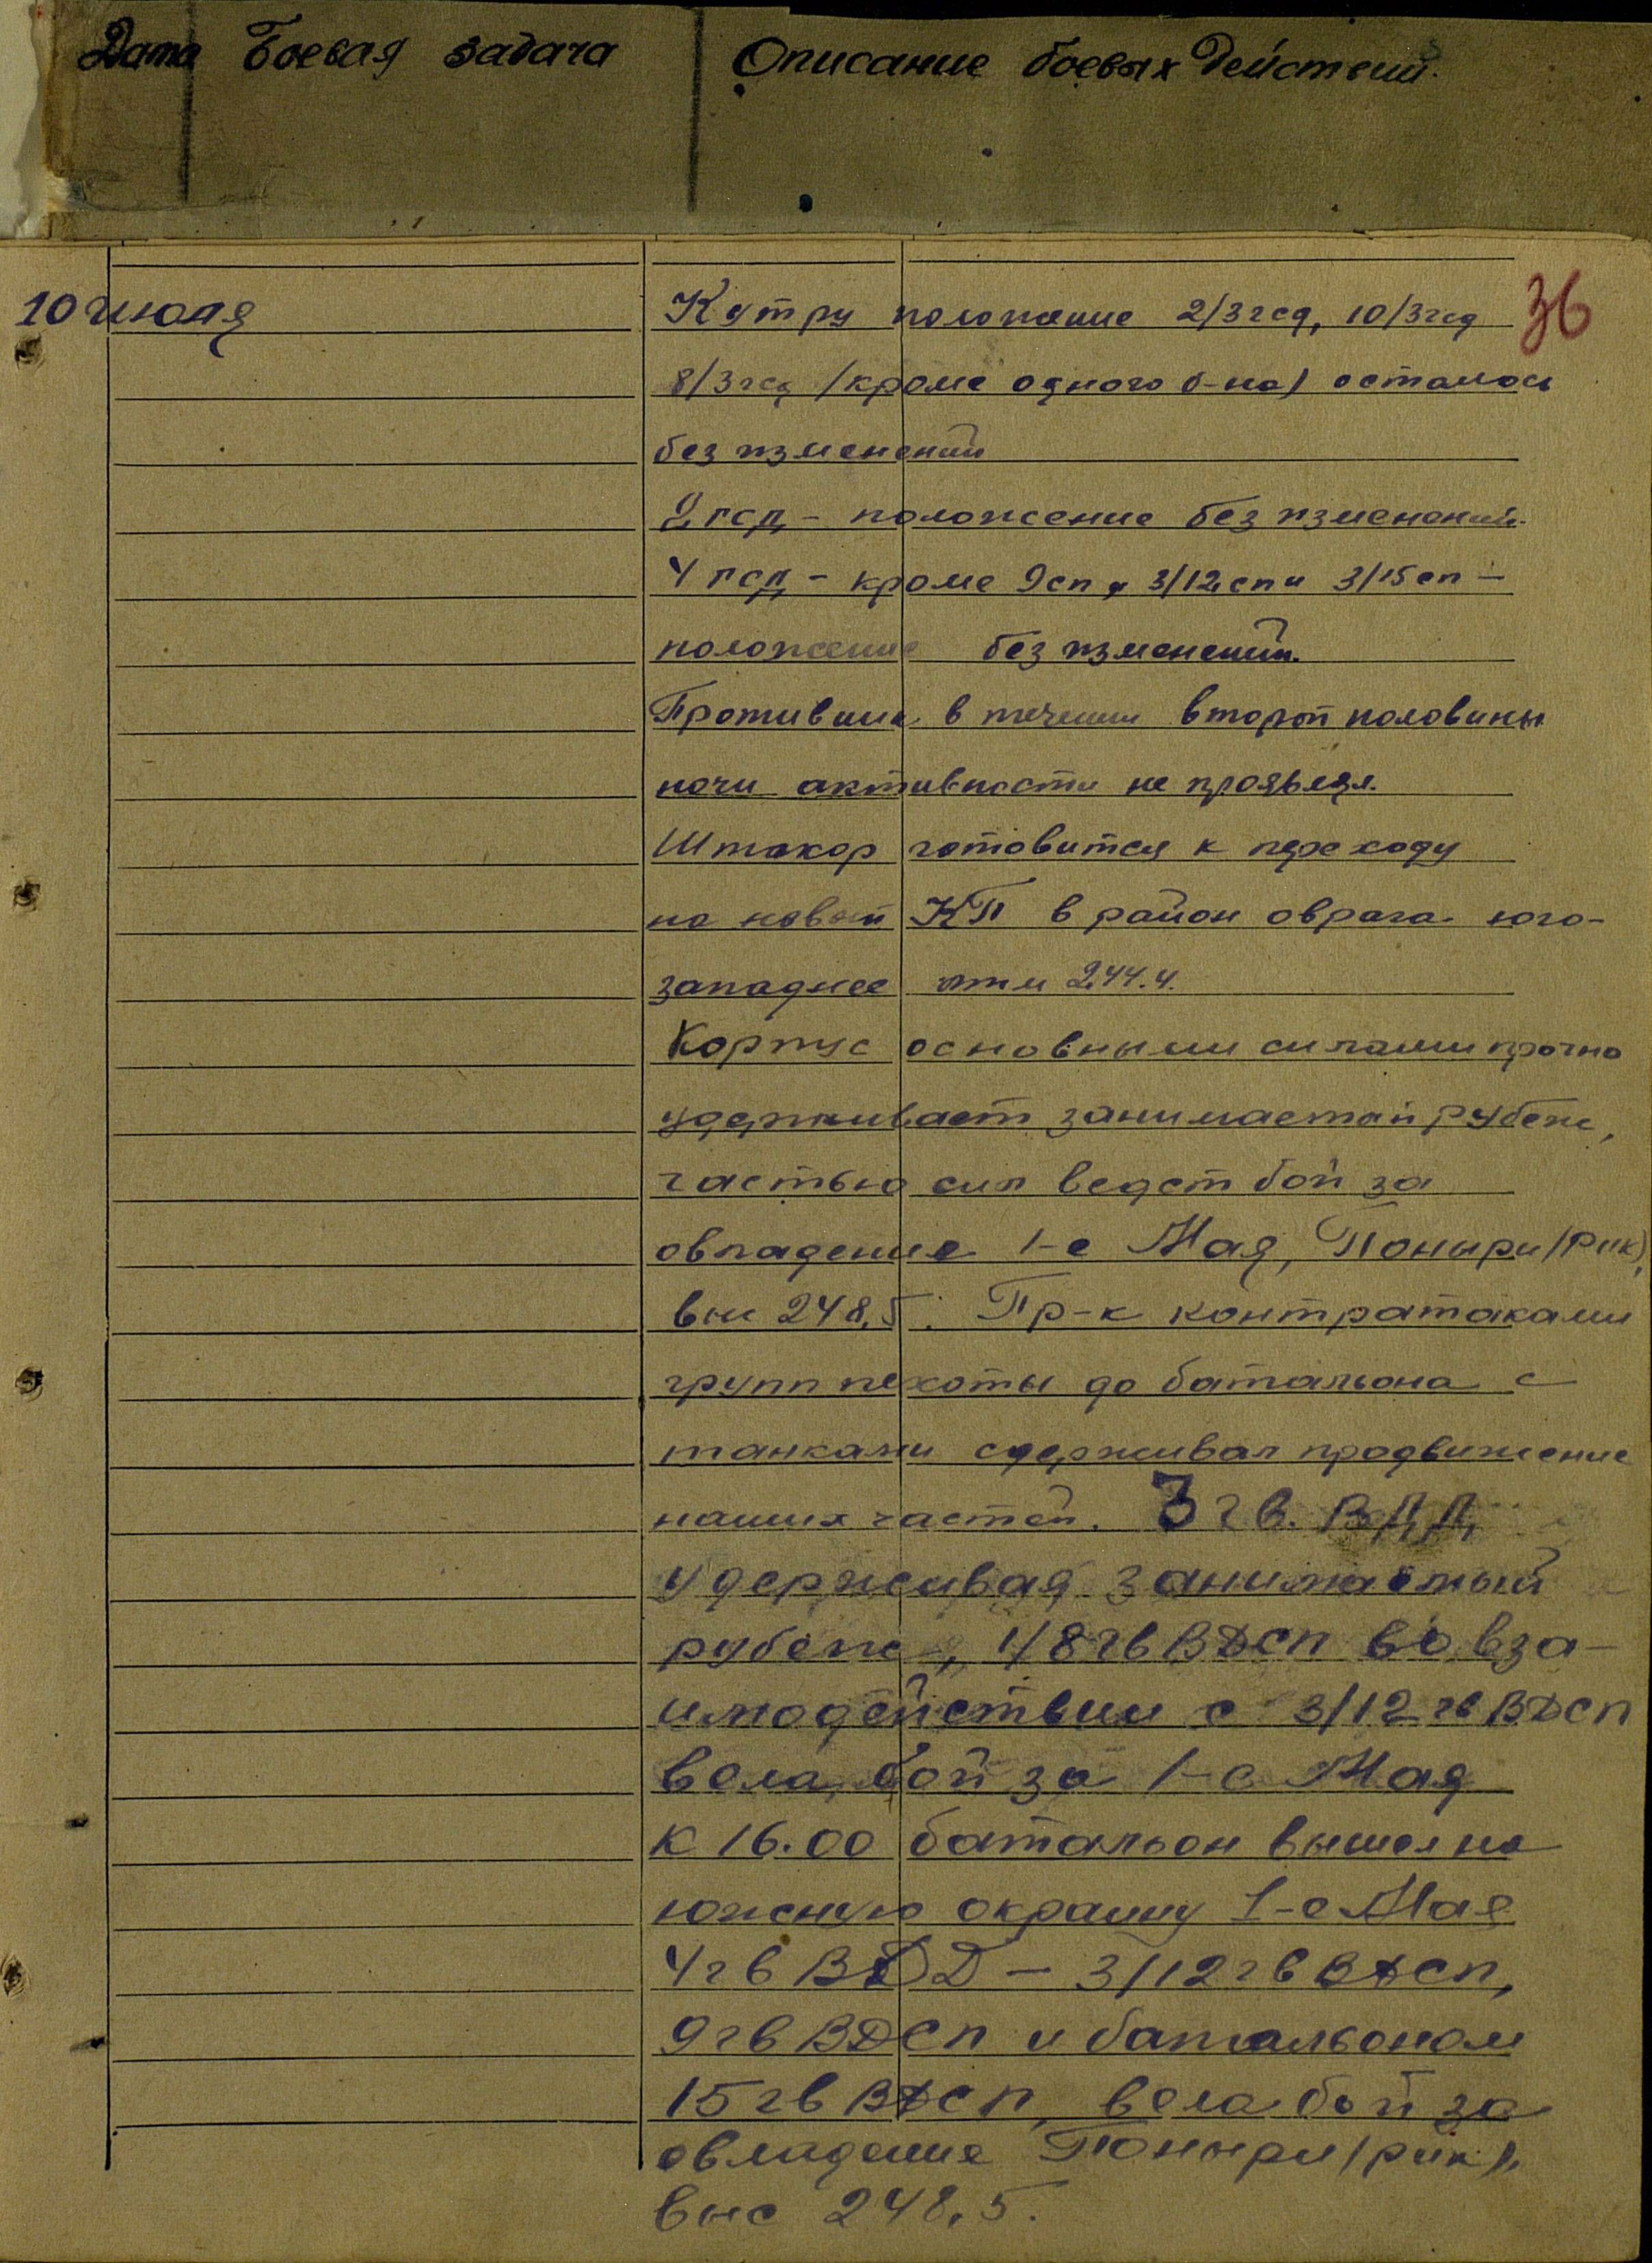 Дата Боевая задача Описание боевых действий.
10 июля К утру положение 2/3гсд, 10/3гсд 36
8/3гсд /кроме одного б-на/ осталось
без изменений
2 гсд - положение без изменений.
4 гсд - кроме 9сп, 3/12сп и 3/15сп -
положение без изменений.
Противник в течении второй половины
ночи активности не проявлял.
Штакор готовится к переходу
на новый КП в район оврага юго-
западнее отм 244.4.
Корпус основными силами прочно
удерживает занимаемый рубеж,
частью сил ведет бой за
овладение 1-е Мая, Поныри /рик/,
выс 248,5. Пр-к контратаками
групп пехоты до батальона с
танками сдерживал продвижение
наших частей. 3 гв. ВДД
удерживая занимаемый
рубеж, 1/8гвВДсп во вза-
имодействии с 3/12 гвВДсп
вела бой за 1-е Мая
К 16.00 батальон вышел на
южную окраину 1-е Мая
4гв ВДД - 3/12гвВДсп,
9гвВДсп и батальоном
15гвВДсп, вела бой за
овладение Поныри /рик/,
выс 248,5.